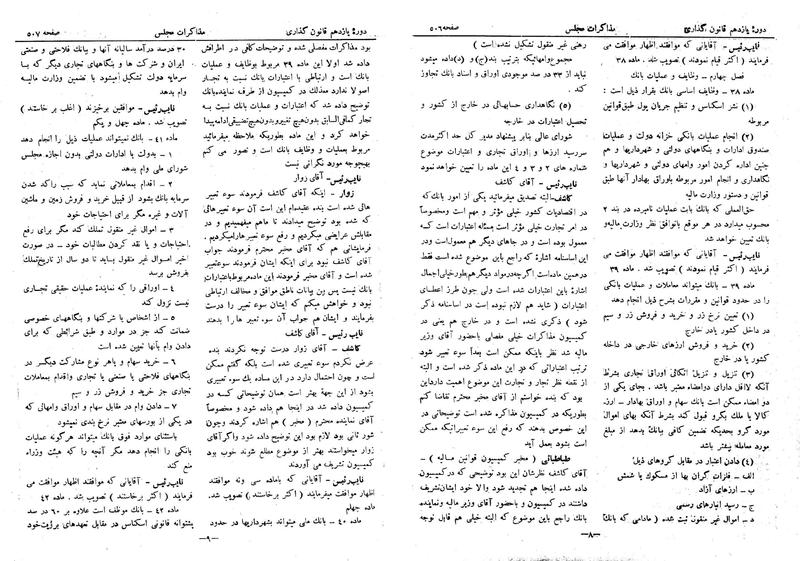 دوره یازدهم قانون گذاری
مذاکرات مجلس
صفحه ۵۰۶
نایب رئیس - آقایانی که موافقند اظهار موافقت می
فرمایند (اکثر قیام نمودند) تصویب شد. ماده ۳۸
فصل چهارم - وظایف و عملیات بانک
ماده ۳۸ - وظایف اساسی بانک بقرار ذیل است:
(۱) نشر اسکناس و تنظیم جریان پول طبق قوانین
مربوطه
(۲) انجام عملیات بانکی خزانه دولت و عملیات
صندوق ادارات و بنگاههای دولتی و شهرداریها و هم
چنین اداره کردن امور وامهای دولتی و شهرداریها و
نگاهداری و انجام امور مربوطه باوراق بهادار آنها طبق
قوانین و دستور وزارت مالیه
حق العملی که بانک بابت عملیات نامبرده در بند ۲
محسوب میدارد در هر موقع باتوافق نظر وزارت مالیه و
بانک تعیین خواهد شد
نایب رئیس - آقایانی که موافقند اظهار موافقت می
فرمایند (اکثر قیام نمودند) تصویب شد. ماده ۳۹
ماده ۳۹ - بانک میتواند معاملات و عملیات بانکی
را در حدود قوانین و مقررات بشرح ذیل انجام دهد
(۱) تعیین نرخ زر و خرید و فروش زر و سیم
در داخل کشور یا در خارج
(۲) خرید و فروش ارزهای خارجی در داخله
کشور یا در خارج
(۳) تنزیل - تنزیل اتکائی اوراق تجاری بشرط
آنکه لااقل دارای دو امضاء معتبر باشد. بجای یکی از
دو امضاء ممکن است بانک سهام و اوراق بهادار - ارز-
کالا یا ملک بگرو قبول کند بشرط آنکه بهای اموال
مورد گرو بحدیکه تضمین کافی بیانک بدهد از مبلغ
مورد معامله بیشتر باشد
(۴) دادن اعتبار در مقابل گروهای ذیل:
الف - فلزات گران بها از مسکوک یا شمش
ب - ارزهای آزاد
ج - رسید انبارهای رسمی
د - اموال غیر منقول ثبت شده (مادامی که بانک
رهنی غیر منقول تشکیل نشده است)
مجموع وامهائیکه بترتیب بند (ج) و (د) داده میشود
نباید از ۳۳ در صد موجودی اوراق و اسناد بانک تجاوز
کند
(۵) نگاهداری حسابهائی در خارج از کشور و
تحصیل اعتبارات در خارجه
شورای عالی بنابر پیشنهاد مدیر کل حد اکثر مدت
سررسید ارزها و اوراق تجاری و اعتبارات موضوع
شماره های ۲ و ۳ و ۴ این ماده را تعیین خواهد نمود
نایب رئیس - آقای کاشف
کاشف - البته تصدیق میفرمائید یکی از امور که
در اقتصادیات کشور خیلی مؤثر و مهم است و مخصوصاً
در امر تجارت خیلی مؤثر است مسئله اعتبارات است که
معمول بوده است و در جاهای دیگر هم معمول است و در
این اساسنامه اشارهٔ که راجع باین موضوع شده است فقط
در همین ماده است اگرچه در مواد دیگر هم بطور خیلی اجمال
اشارهٔ باین اعتبارات شده است ولی چون طرز اعطای
اعتبارات (شاید هم لازم نبوده است در اساسنامه ذکر
شود) ذکری نشده است و در خارج هم یعنی در
کمیسیون مذاکرات خیلی مفصلی باحضور آقای وزیر
مالیه شد نظر باینکه ممکن است بعداً سوء تعبیر شود
ترتیب اعتباراتی که در این ماده ذکر شده است و البته
از نقطه نظر تجار و تجارت این موضوع اهمیت دارد این
بود که بنده خواستم از آقای مخبر محترم تقاضا کنم
بطوریکه در کمیسیون مذاکره شده است توضیحاتی در
این خصوص بدهند که رفع این سوء تعبیراتیکه ممکن
است بشود بعمل آید
طباطبائی (مخبر کمیسیون قوانین مالیه) -
آقای کاشف نظرشان این بود توضیحی که در کمیسیون
داده شده اینجا هم تجدید شود والا خود ایشان تشریف
داشتند در کمیسیون و باحضور آقای وزیر مالیه و نماینده
بانک راجع باین موضوع که البته خیلی هم قابل توجه
-۸-
دوره یازدهم قانون گذاری
مذاکرات مجلس
صفحه ۵۰۷
بود مذاکرات مفصلی شده و توضیحات کافی در اطرافش
داده شد اولا این ماده ۳۹ مربوط بوظایف و عملیات
بانک است و ارتباطی با اعتبارات بانک نسبت به تجار
اصولا ندارد معذلک در کمیسیون از طرف نماینده بانک
توضیح داده شد که اعتبارات و عملیات بانک نسبت به
تجار کمافی السابق بدون هیچ تغییر و بدون هیچ تضییقی ادامه پیدا
خواهد کرد و این ماده بطوریکه ملاحظه میفرمائید
مربوط بعملیات و وظایف بانک است و تصور می کنم
بهیچوجه مورد نگرانی نیست
نایب رئیس - آقای زوار
زوار - اینکه آقای کاشف فرمودند سوء تعبیرهائی
هائی شده است بنده عقیده ام این است آن سوء تعبیرهائی
که شده بود توضیح میدادند تا ماهم میفهمیدیم و در
مقابلش عرایضی میکردیم و رفع سوء تعبیر هارا میکردیم.
فرمایشی هم که آقای مخبر محترم فرمودند جواب
آقای کاشف نبود برای اینکه ایشان فرمودند سوء تعبیر
شده است و آقای مخبر فرمودند این ماده مربوط باعتبارات
بانک نیست پس بین بیانات ناطق موافق و مخالف ارتباطی
نبود و خواهش میکنم که ایشان سوء تعبیر را درست
بفرمایند و ایشان هم جواب آن سوء تعبیر ها را بدهند
نایب رئیس - آقای کاشف
کاشف - آقای زوار درست توجه نکردند بنده
عرض نکردم سوء تعبیری شده است بلکه گفتم ممکن
است و چون احتمال دارد در این ماده یک سوء تعبیری
بشود از این جهة بهتر است همان توضیحاتی که در
کمیسیون داده شد در اینجا هم داده شود و مخصوصاً
آقای نماینده محترم (مخبر) هم اشاره کردند و چون
شور ثانی بود لازم بود این توضیح داده شود و اگر آقای
زوار میخواستند بهتر از موضوع مطلع شوند خوب بود
کمیسیون تشریف می آوردند
نایب رئیس - آقایانی که باماده سی ونه موافقند
اظهار موافقت میفرمایند (اکثر برخاستند) تصویب شد.
ماده چهلم
ماده ۴۰ - بانک ملی میتواند بشهرداریها در حدود
۳۰ درصد درآمد سالیانه آنها و ببانک فلاحتی و صنعتی
ایران و شرکت ها و بنگاههای تجاری دیگر که با
سرمایه دولت تشکیل میشود با تضمین وزارت مالیه
وام بدهد
نایب رئیس - موافقین برخیزند (اغلب بر خاستند)
تصویب شد. ماده چهل و یکم
ماده ۴۱ - بانک نمیتواند عملیات ذیل را انجام دهد
۱ - بدولت یا ادارات دولتی بدون اجازه مجلس
شورای ملی وام بدهد
۲ - اقدام بمعاملاتی نماید که سبب راکد شدن
سرمایه بانک بشود از قبیل خرید و فروش زمین و ماشین
آلات و غیره مگر برای احتیاجات خود
۳ - اموال غیر منقول تملک کند مگر برای رفع
احتیاجات و یا نقد کردن مطالبات خود - در صورت
اخیر اموال غیر منقول بساید تا دو سال از تاریخ تملک
بفروش برسد
۴ - اوراقی را که نماینده عملیات حقیقی تجاری
نیست نزول کند
۵ - از اشخاص یا شرکتها و بنگاههای خصوصی
ضمانت کند جز در موارد و طبق شرائطی که برای
دادن وام بآنها تعیین شده است
۶ - خرید سهام و یا هر نوع مشارکت دیگر در
بنگاههای فلاحتی یا صنعتی یا تجاری و اقدام بمعاملات
تجاری جز خرید و فروش زر و سیم
۷ - دادن وام در مقابل سهام و اوراق وامهائی که
در یکی از بورسهای معتبر نرخ بندی نمیشود
باستثنای موارد فوق بانک میتواند هر گونه عملیات
بانکی را انجام دهد مگر آنچه را که هیئت وزراء
منع کند
نایب رئیس - آقایانی که موافقند اظهار موافقت می
فرمایند (اکثر برخاستند) تصویب شد. ماده ۴۲
ماده ۴۲ - بانک موظف است علاوه بر ۶۰ در صد
پشتوانه قانونی اسکناس در مقابل تعهدهای برؤیت خود
-۹-